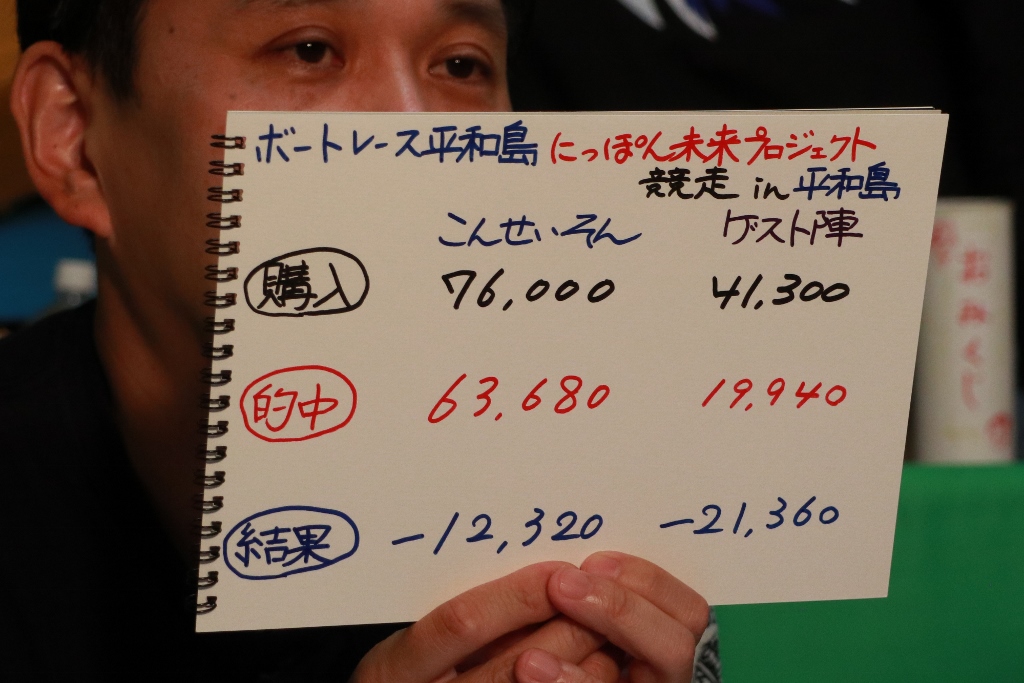 ボートレース平和島 にっぽん未来プロジェクト
競走 in 平和島
こんせいそん ゲスト陣
購入 76,000 41,300
的中 63,680 19,940
結果 -12,320 -21,360
おみくじ